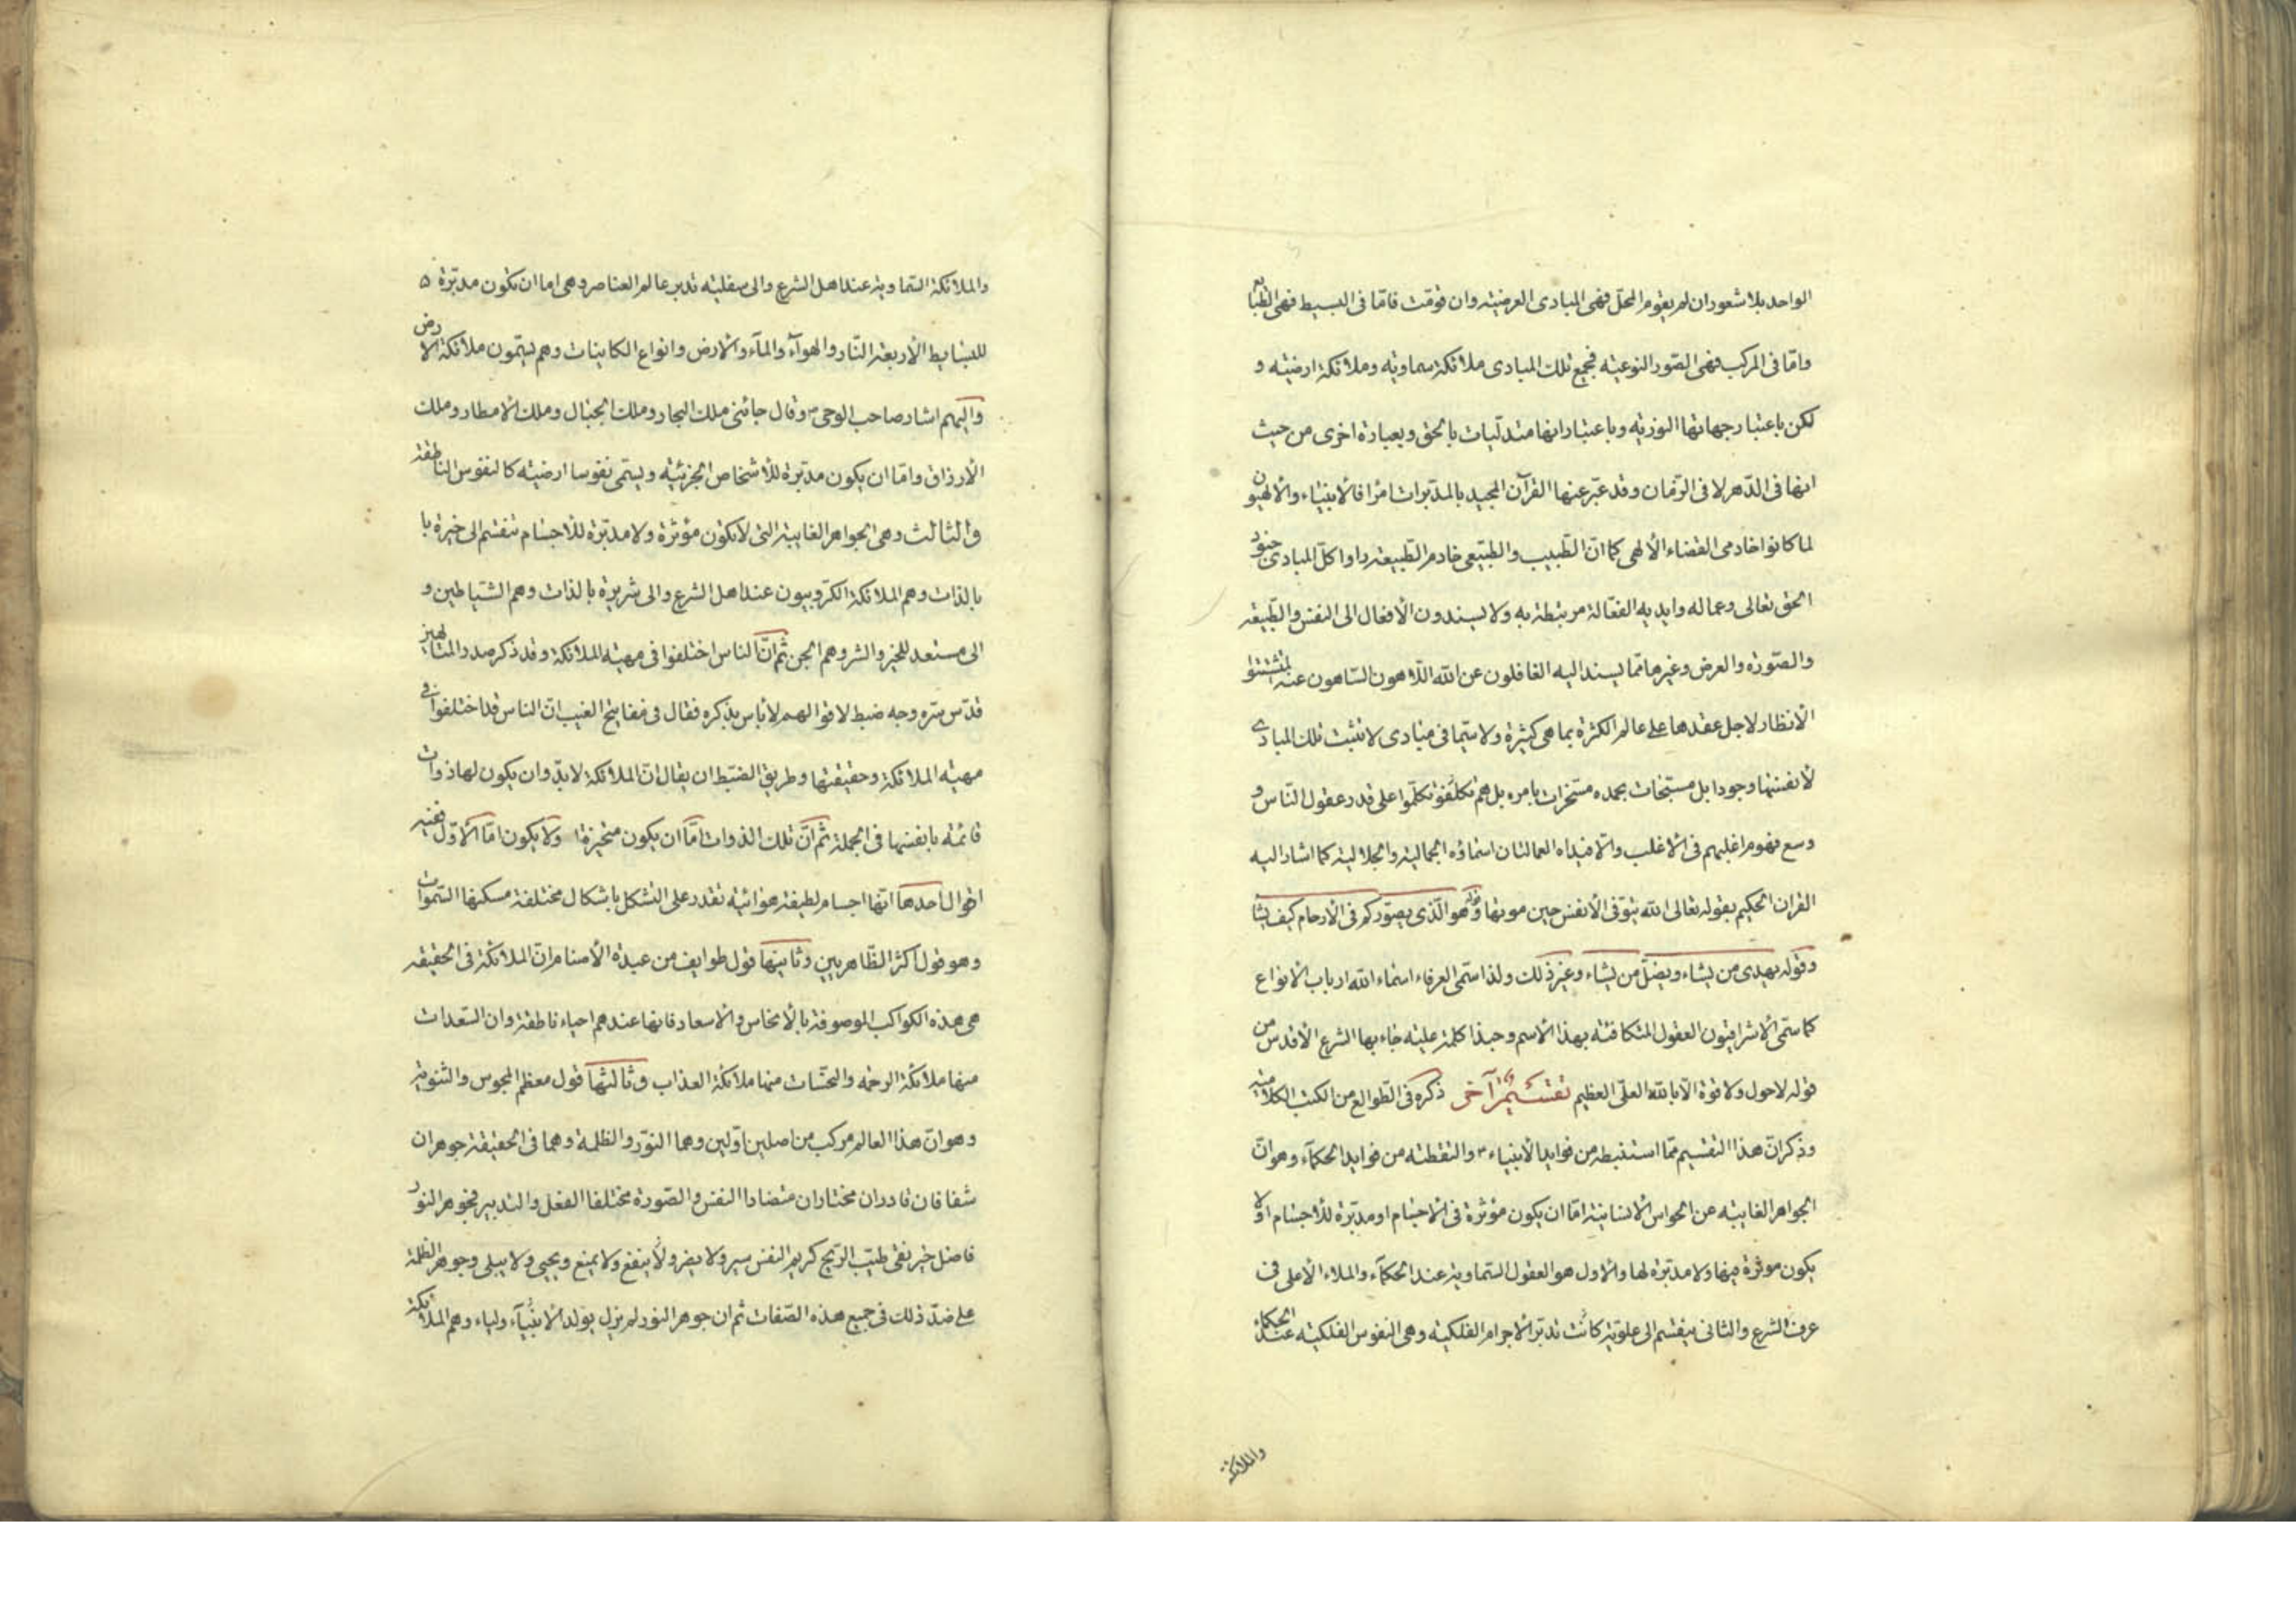 الواحد بلا شعور ان لم يقوم المحل فهى المبادى العرضية وان قومت فاما فى البسيط فهى الطبايع
واما فى المركب فهى الصور النوعية فجميع تلك المبادى ملائكة سماوية وملائكة ارضية و
لكن باعتبار جهاتها النورية وباعتبار انها متدليات بالحق وبعبارة اخرى من حيث
انها فى الدهر لا فى الزمان وقد عبر عنها القرآن المجيد بالمدبرات امرا فالانبياء والالهيون
لما كانوا خادمى القضاء الالهى كما ان الطبيب والطبيعى خادم الطبيعة راوا كل المبادى جنود
الحق تعالى وعماله وايديه الفعالة مرتبطة به ولا يسندون الافعال الى النفس والطبيعة
والصورة والعرض وغيرها مما يسند اليه الغافلون عن الله اللاهون الساهون عنه لمتشتتوا
الانظار لاجل عقدها على عالم الكثرة بما هى كثيرة ولا سيما فى مبادى لا تثبت تلك المبادى
لانفسها وجودا بل مسبحات بحمده مسخرات بامره بل هم تكلفوا تكلموا على قدر عقول الناس و
وسع فهوم اغلبهم فى الاغلب والا فيداه العمالتان اسماؤه الجمالية والجلالية كما اشار اليه
القران الحكيم بقوله تعالى الله يتوفى الانفس حين موتها وقوله هو الذى يصوركم فى الارحام كيف يشا
وقوله يهدى من يشاء ويضل من يشاء وغير ذلك ولذا سمى العرفاء اسماء الله ارباب الانواع
كما سمى الاشراقيون العقول المتكافئة بهذا الاسم وحبذا كلمة علية جاء بها الشرع الاقدس من
قوله لا حول ولا قوة الا بالله العلى العظيم تقسيم آخر ذكره فى الطوالع من الكتب الكلامية
وذكر ان هذا التقسيم مما استنبطه من فوايد الانبياء ؑ والتقطته من فوايد الحكمآء وهو ان
الجواهر الغايبة عن الحواس الانسانية اما ان يكون مؤثرة فى الاجسام او مدبرة للاجسام او لا
يكون موثرة فيها ولا مدبرة لها والاول هو العقول السماوية عند الحكمآء والملاء الاعلى فى
عرف الشرع والثانى ينقسم الى علوية كانت تدبر الاجرام الفلكية وهى النفوس الفلكية عند الحكماء
والملائكة
والملائكة السماوية عند اهل الشرع والى سفلية تدبر عالم العناصر وهى اما ان تكون مدبرة
للبسايط الاربعة النار والهوآء والمآء والارض وانواع الكاينات وهم يسمون ملائكة الارض
واليهم اشار صاحب الوحى ؐ وقال جائنى ملك البحار وملك الجبال وملك الامطار وملك
الارزاق واما ان يكون مدبرة للاشخاص الجزئية ويسمى نفوسا ارضية كالنفوس الناطقة
والثالث وهى الجواهر الغايبة التى لا تكون مؤثرة ولا مدبرة للاجسام تنقسم الى خيرة با
بالذات وهم الملائكة الكروبيون عند اهل الشرع والى شريرة بالذات وهم الشياطين و
الى مستعد للخير والشر وهم الجن ثم ان الناس اختلفوا فى مهية الملائكة وقد ذكر صدر المتالهين
قدس سره وجه ضبط لاقوالهم لا باس بذكره فقال فى مفاتيح الغيب ان الناس قد اختلفوا فى
مهية الملائكة وحقيقتها وطريق الضبط ان يقال ان الملائكة لا بد وان يكون لها ذوات
قائمة بانفسها فى الجملة ثم ان تلك الذوات اما ان يكون متحيزة او لا يكون اما الاول ففيه
اقوال احدها انها اجسام لطيفة هوائية تقدر على التشكل باشكال مختلفة مسكنها السموات
وهو قول اكثر الظاهريين وثانيها قول طوايف من عبدة الاصنام ان الملائكة فى الحقيقة
هى هذه الكواكب الموصوفة بالانحاس والاسعاد فانها عندهم احياء ناطقة وان السعدات
منها ملائكة الرحمة والنحسات منها ملائكة العذاب وثالثها قول معظم المجوس والثنوية
وهو ان هذا العالم مركب من اصلين اولين وهما النور والظلمة وهما فى الحقيقة جوهران
شفافان قادران مختاران متضادا النفس والصورة مختلفا الفعل والتدبير فجوهر النور
فاضل خير نقى طيب الريح كريم النفس يسر ولا يضر ولا ينفع ولا يمنع ويحيى ولا يبلى وجوهر الظلمة
على ضد ذلك فى جميع هذه الصفات ثم ان جوهر النور لم يزل يولد الانبيآء ولياء وهم الملائكة